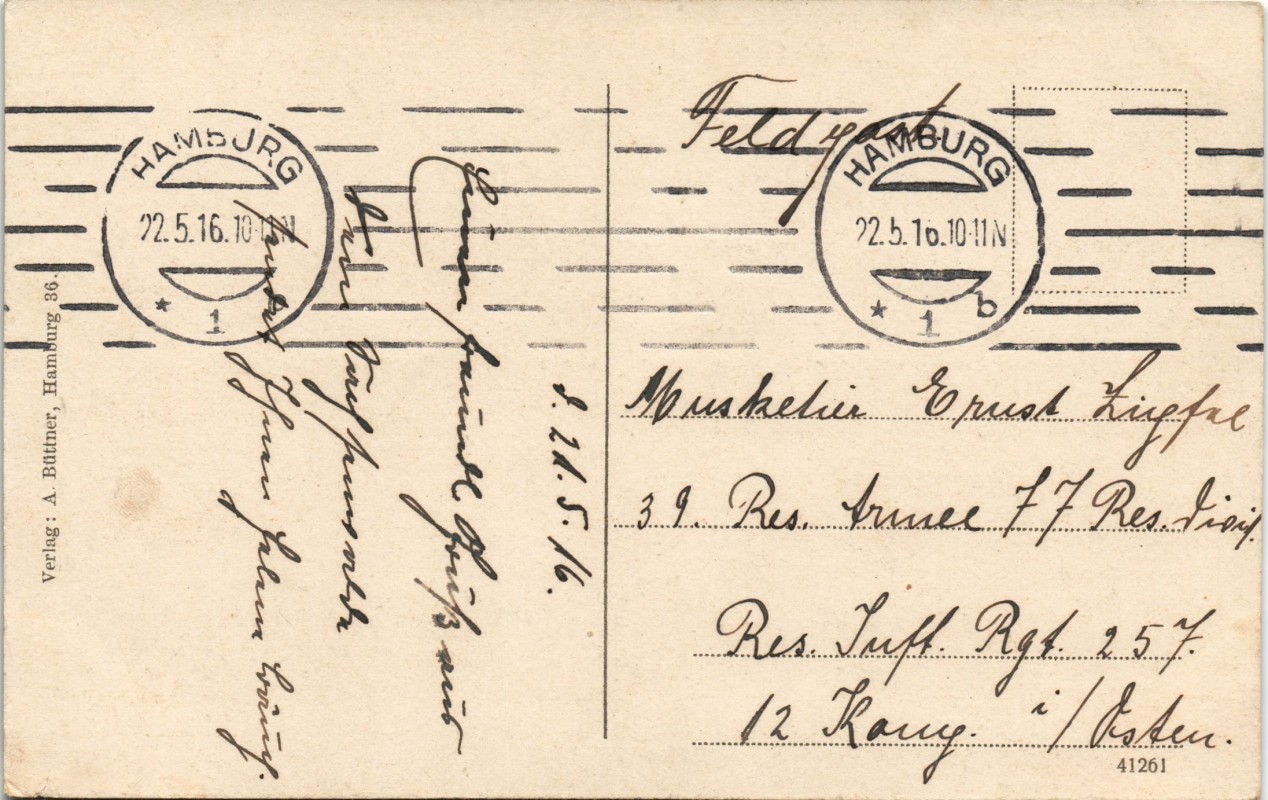 Feldpost.
HAMBURG
22.5.16.10-11N
* 1
HAMBURG
22.5.16.10-11N
* 1 b
d. 21.5.16.
Einen freundl. Gruß aus
dem
sendet Ihnen
Musketier Ernst
39. Res. Armee 77 Res. Divis.
Res. Inft. Rgt. 257.
12 Komp. i/Osten.
Verlag: A. Büttner, Hamburg 36.
41261